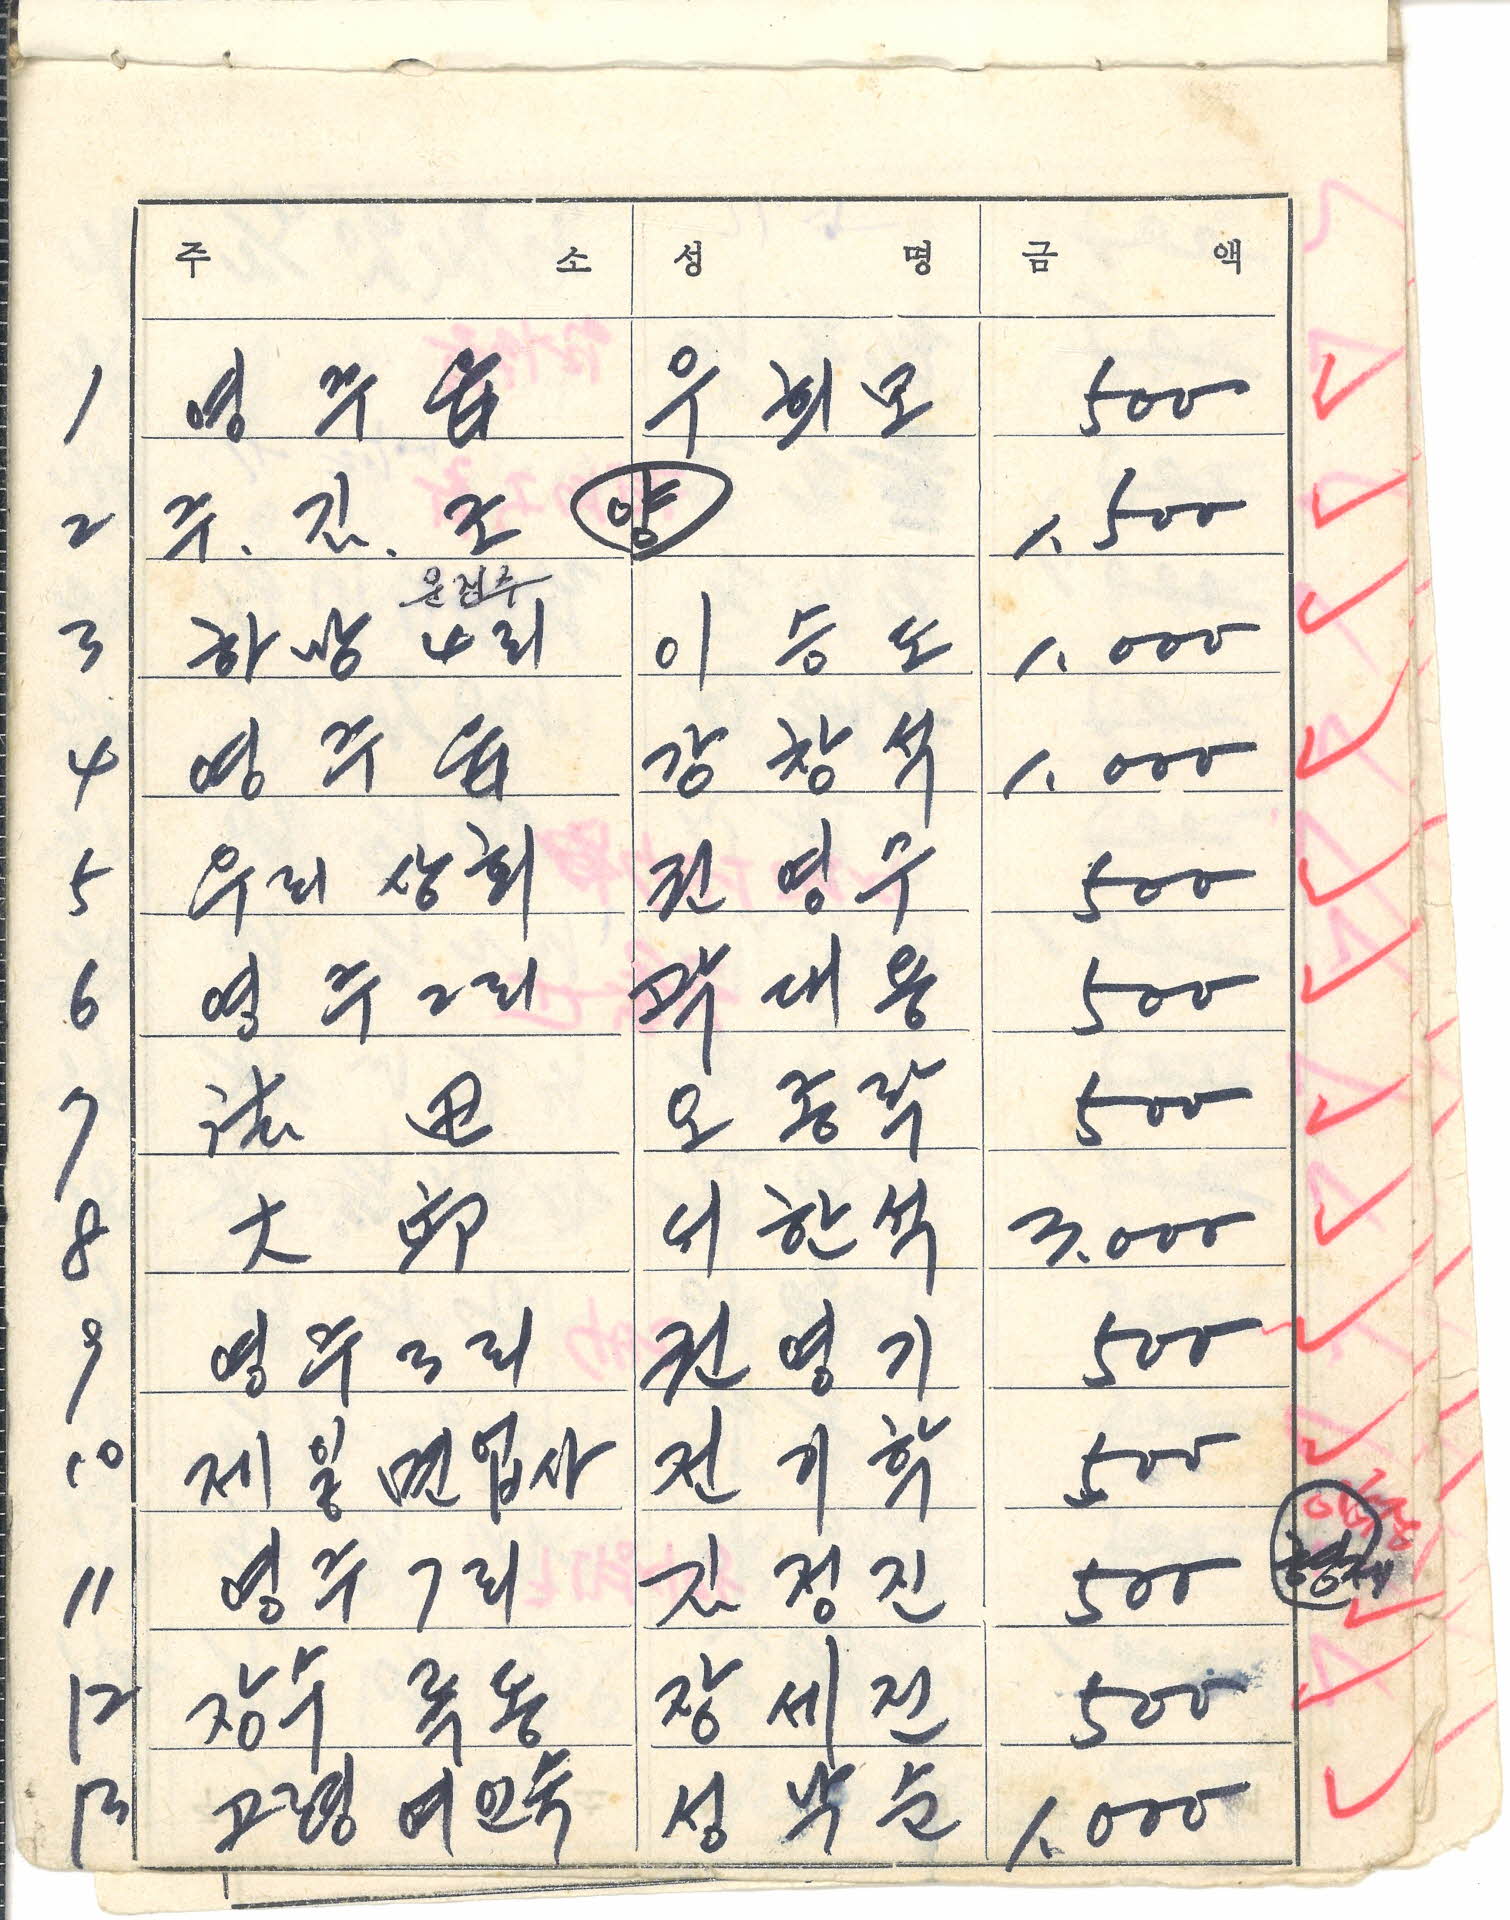 주 소 성 명 금 액
1 영 주 읍 우 희 모 500
2 주. 김. 조 양 1.500
운전수
3 하망 4리 이 승 도 1.000
4 영 주 읍 강 창 석 1.000
5 우리 상회 전 영 우 500
6 영 주 2리 곽 대 용 500
7 法 田 오 종 락 500
8 大 邱 서 한 석 3.000
9 영 주 3리 권 영 기 500
10 제 일 면업사 전 기 학 500
11 영주 7리 김 정 진 500
형제
12 장수 죽동 장 세 전 500
13 고령 여인숙 성 박 순 1.000